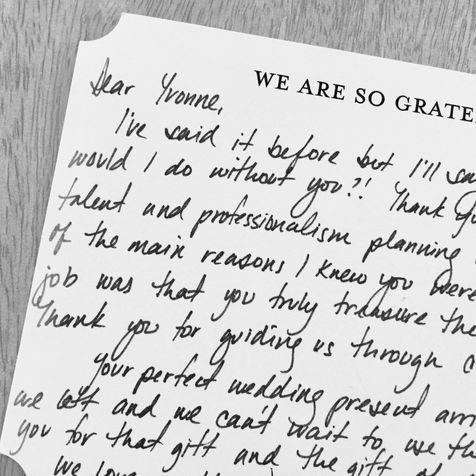 WE ARE SO GRATE
Dear Yvonne,
I've said it before but I'll sa
would I do without you?! Thank yo
talent and professionalism planning
of the main reasons I knew you were
job was that you truly treasure the
Thank you for guiding us through c
Your perfect wedding present arri
we left and we can't wait to use th
you for that gift and the gift of
we love